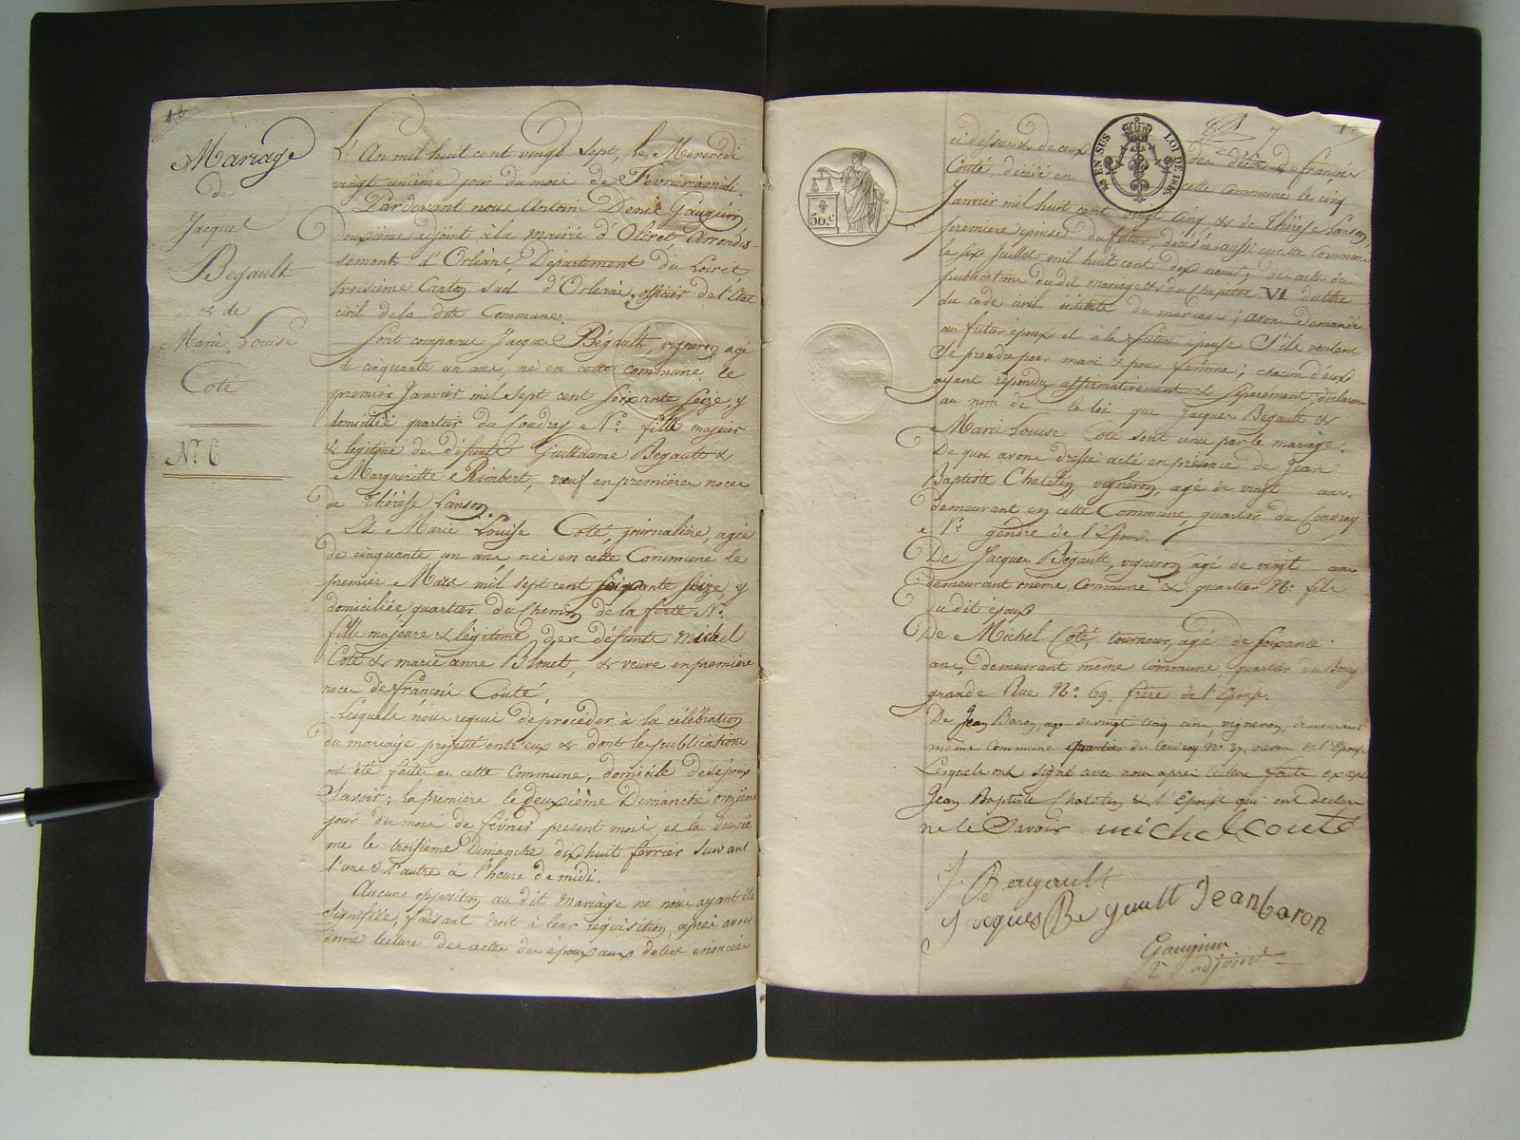 Mariage
de
Jacques
Begault
& de
Marie Louise
Coté
N.º 6
L'An mil huit cent vingt sept, le Mercredi
vingt unième jour du mois de Février à midi.
Pardevant nous Antoin Denis Gauguin
Deuxième adjoint à la mairie d'Olivet, Arrondis-
sement d'Orléans, Departement du Loiret,
troisième Canton Sud d'Orléans, officier de l'état
civil de la dite Commune.
Sont comparus Jacques Bégault, vigneron agé
de cinquante un ans, né en cette commune le
premier Janvier mil sept cent soixante seize, y
domicilié quartier du Coudray N.º fils majeur
& légitime de défunts Guillaume Begault &
Marguerite Rimbert, veuf en premieres noces
de Thérèse Sanson.
Et Marie Louise Coté, journalière, agée
de cinquante un ans née en cette Commune le
premier Mars mil sept cent soixante seize, y
domiciliée quartier du Chemin de la ferté N.º
fille majeure & légitime des défunts Michel
Coté & marie anne Blouet, & veuve en première
noce de françois Couté.
Lesquels nous requis de procéder à la célébration
du mariage projetté entre eux & dont les publications
ont été faites en cette Commune, domicile des époux
Savoir; la première le deuxième Dimanche onzième
jour du mois de février present mois, et la deuxiè
me le troisième Dimanche dix huit fevrier suivant
l'une & l'autre à l'heure de midi.
Aucune opposition au dit mariage ne nous ayant été
signifiée, faisant droit à leur réquisition, après avoir
donné lecture des actes des époux aux dates enoncées
ci dessus & de ceux des décès de françois
Couté, décédé en cette Commune le cinq
Janvier mil huit cent vingt cinq & de Thérèse Sanson,
premiere epouse du futur, décédée aussi en cette Commune
le six Juillet mil huit cent dix neuf, des actes de
publications du dit mariage & du chapitre VI du titre
du code civil intitulé du mariage; avons demandé
au futur époux et à la future épouse s'ils veulent
se prendre pour mari & pour femme; chacun d'eux
ayant répondu affirmativement & séparement, déclarons
au nom de la loi que Jacques Begault &
Marie Louise Coté sont unis par le mariage.
De quoi avons dressé acte en présence de Jean
Baptiste vigneron, agé de vingt ans.
demeurant en cette Commune, quartier du Coudray
N.º gendre de l'Epoux.
De Jacques Begault, vigneron agé de vingt ans
demeurant même Commune & quartier N.º fils
du dit époux
De Michel Coté, tourneur, agé de soixante
ans, demeurant même commune, quartier du Bourg
grande Rue N.º 69. frère de l'Epouse.
De Jean Baron, agé de vingt cinq ans, vigneron, demeurant
même Commune quartier du Coudray N.º 37, de l'Epouse
Lesquels ont signé avec nous après lecture faite excepté
Jean Baptiste & l'Epouse qui ont déclaré
ne le Savoir michel couté
J. Begault
Jaques Begault Jean baron
Gauguin
2.e adjoint
50.c
10 EN SUS
LOI DE 1816